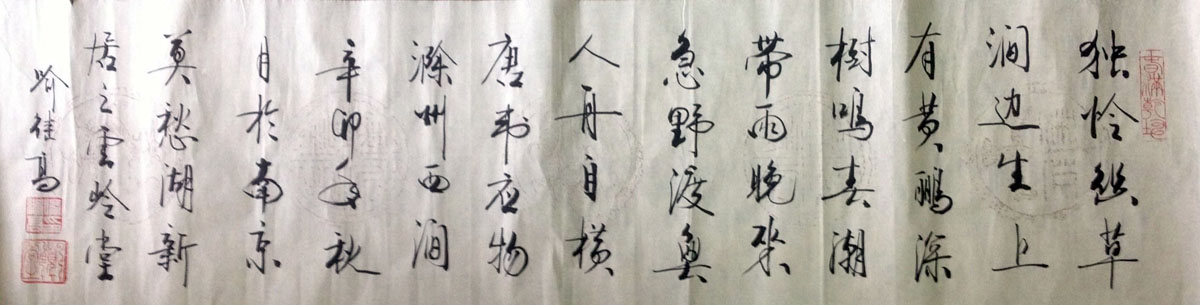 独怜幽草
涧边生上
有黄鹂深
樹鸣春潮
带雨晚来
急野渡無
人舟自横
唐韦应物
滁州西涧
辛卯年秋
月於南京
莫愁湖新
居之雲岭堂
喻继高